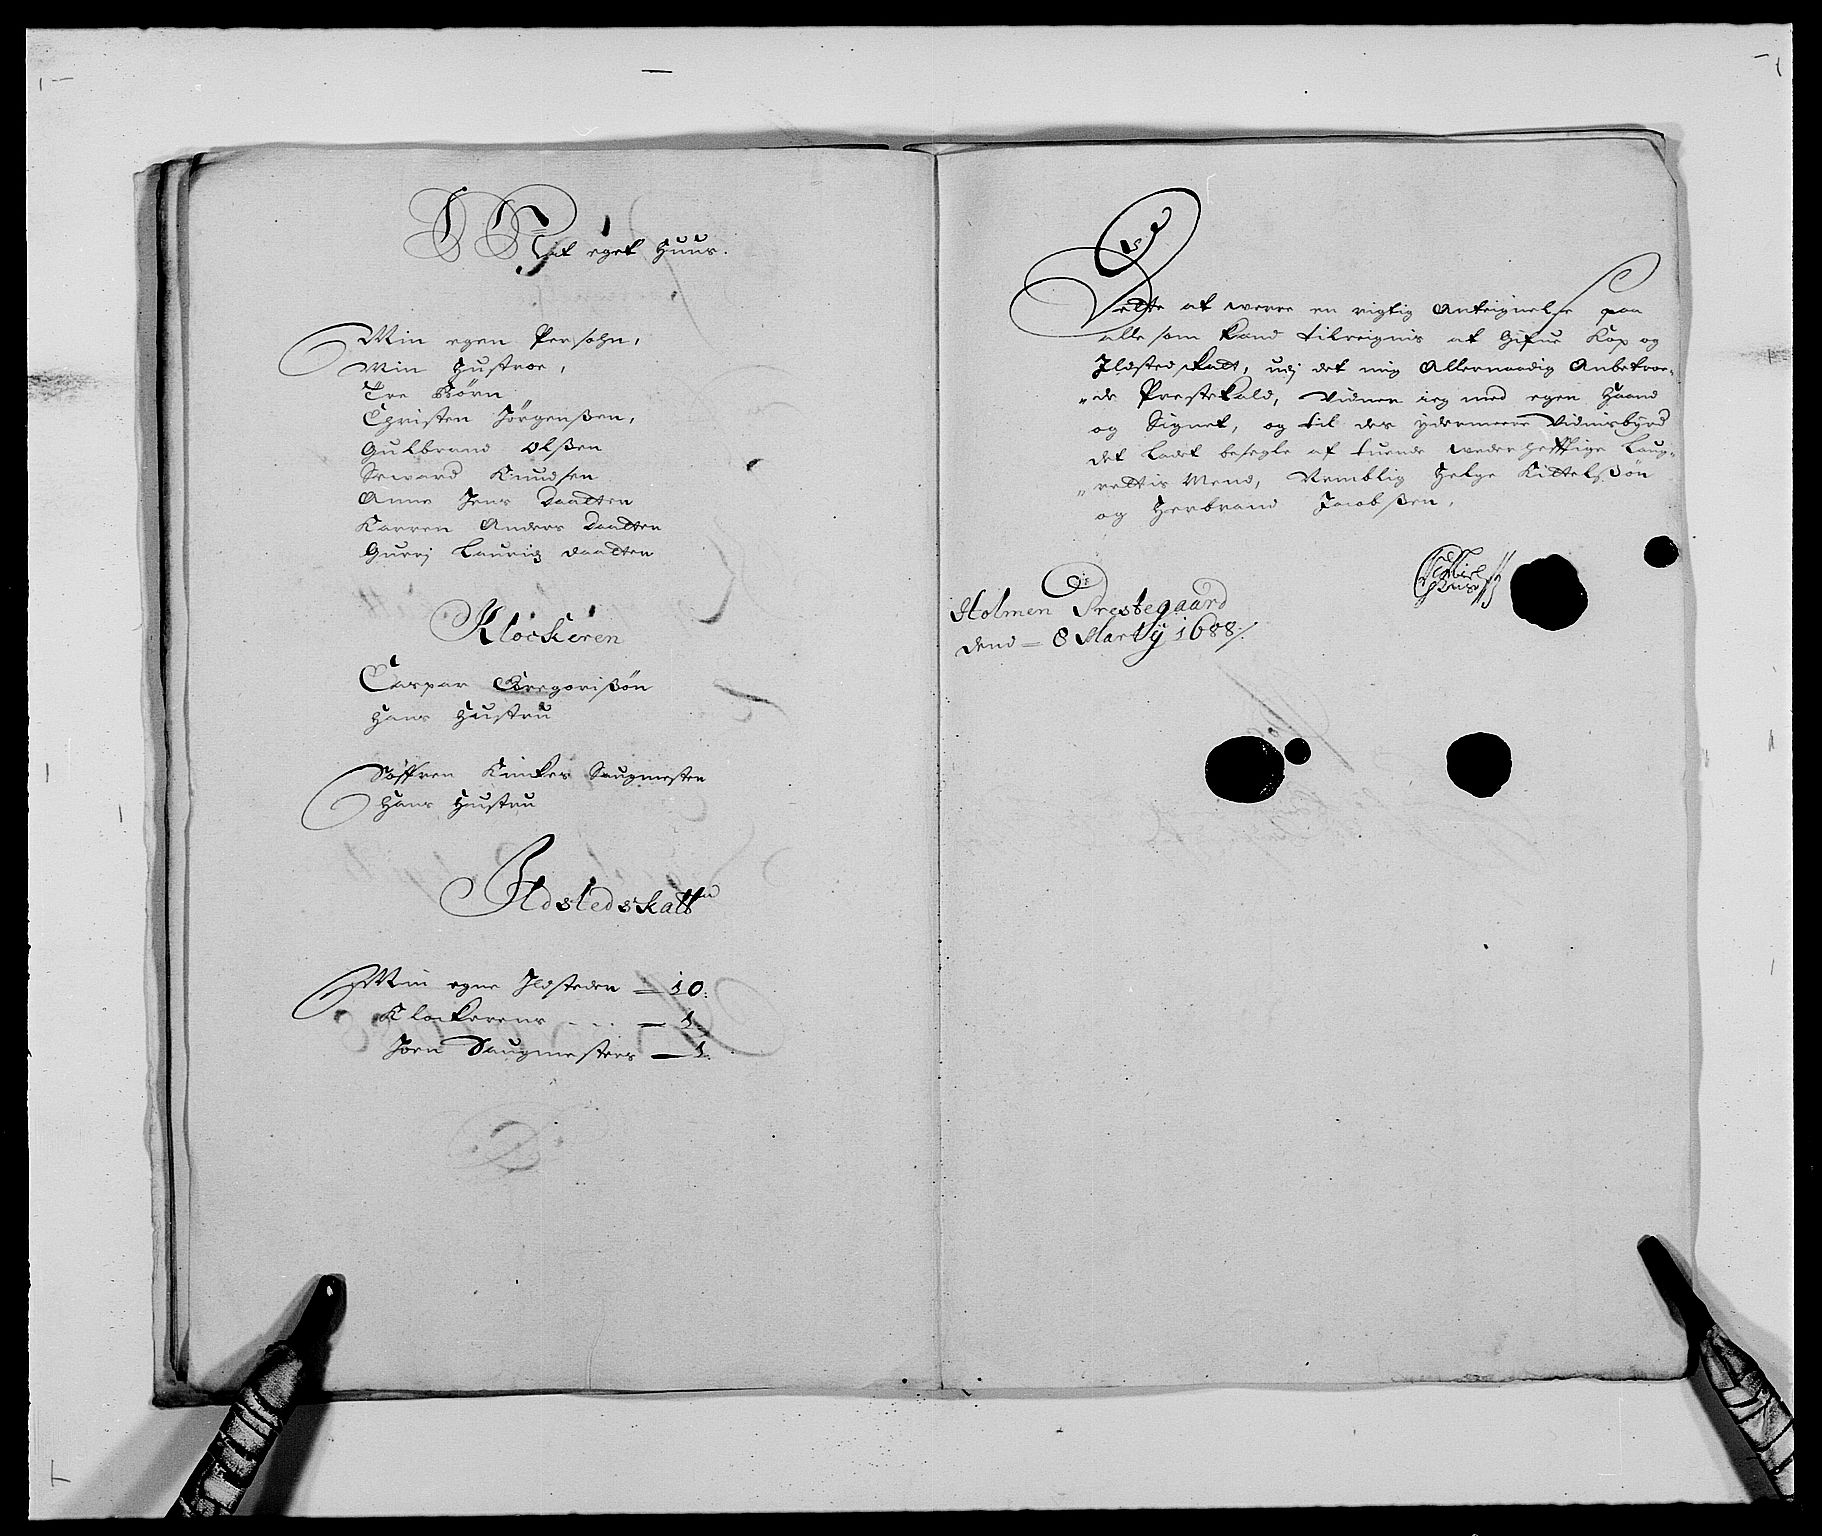 Mit eget Huus.
Min egen Persohn,
Min Hustroe,
Tre Börn
Christen Jörgenßen,
Gulbrand Olßen
Seward Knudsen
Anne Jens Daatter
Karren Anders Daatter
Gurrj Lauridz Daatter
Klockeren
Caspar Gregorißön
Hans Hustru
Söffren Saugmester
Hans Hustru
Ildstedskatt
Min egne Ildsteder — 10.
Klockerens - - - — 1.
Saugmesters — 1.
Dette at werre en rigtig Anteignelse paa
alle som kand tilreignis at Gifue Kop og
Ildsted skatt, udj det mig Allernaadig Anbetroe„
„de Prestekald, Vidner ieg med egen Haand
og Signet, og til des ydermeere Vidnisbyrd
det ladet besegle af tuende wederhefftige Laug„
„rettis Mend, Nemblig Helge Kittelßön
og Herbrand Jacobßen,
Holmen Prestegaard
dend — 8 Martij 1688/.